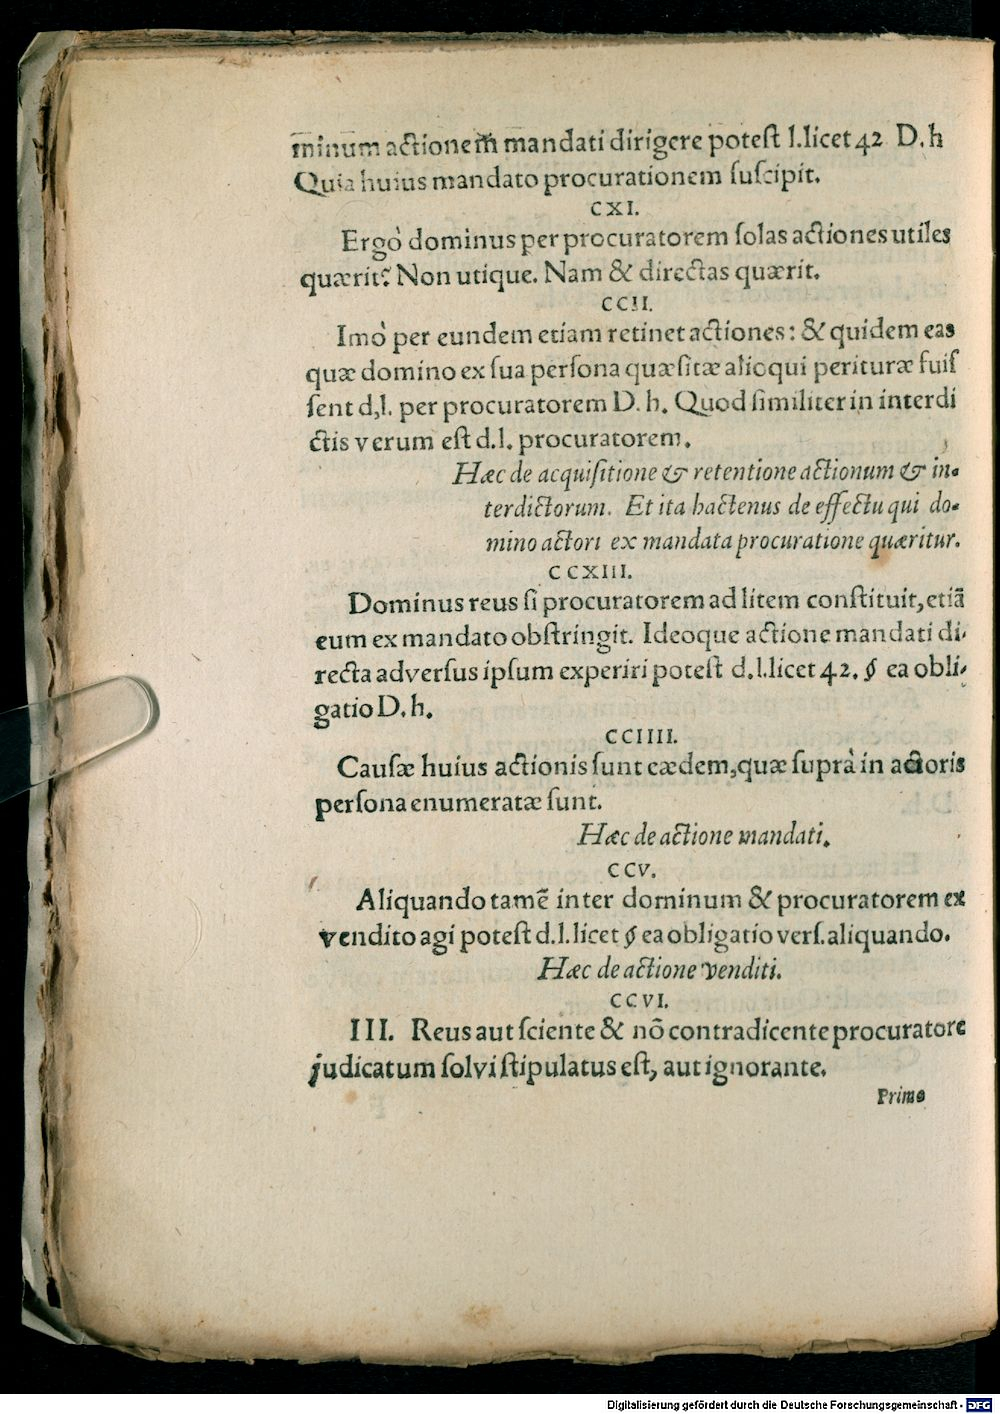 minum actionem̃ mandati dirigere potest l.licet 42 D. h
Quia huius mandato procurationem ſuſcipit.
CXI.
Ergò dominus per procuratorem ſolas actiones utiles
quærit? Non utique. Nam & directas quærit.
CCII.
Imò per eundem etiam retinet actiones: & quidem eas
quæ domino ex ſua perſona quæſitæ alioqui perituræ fuiſ
ſent d,l. per procuratorem D. h. Quod ſimiliter in interdi
ctis verum eſt d.l. procuratorem.
Hæc de acquiſitione & retentione actionum & in-
terdictorum. Et ita hactenus de effectu qui do-
mino actori ex mandata procuratione quæritur.
CCXIII.
Dominus reus ſi procuratorem ad litem conſtituit, etiã
eum ex mandato obſtringit. Ideoque actione mandati di-
recta adverſus ipſum experiri poteſt d.l.licet 42. § ea obli-
gatio D. h.
CCIIII.
Cauſæ huius actionis ſunt eædem, quæ ſuprà in actoris
perſona enumeratæ ſunt.
Hæc de actione mandati.
CCV.
Aliquando tamẽ inter dominum & procuratorem ex
vendito agi poteſt d.l.licet § ea obligatio verſ.aliquando.
Hæc de actione venditi.
CCVI.
III. Reus aut ſciente & nõ contradicente procuratore
judicatum ſolvi ſtipulatus eſt, aut ignorante.
Primo
Digitalisierung gefördert durch die Deutsche Forschungsgemeinschaft - DFG